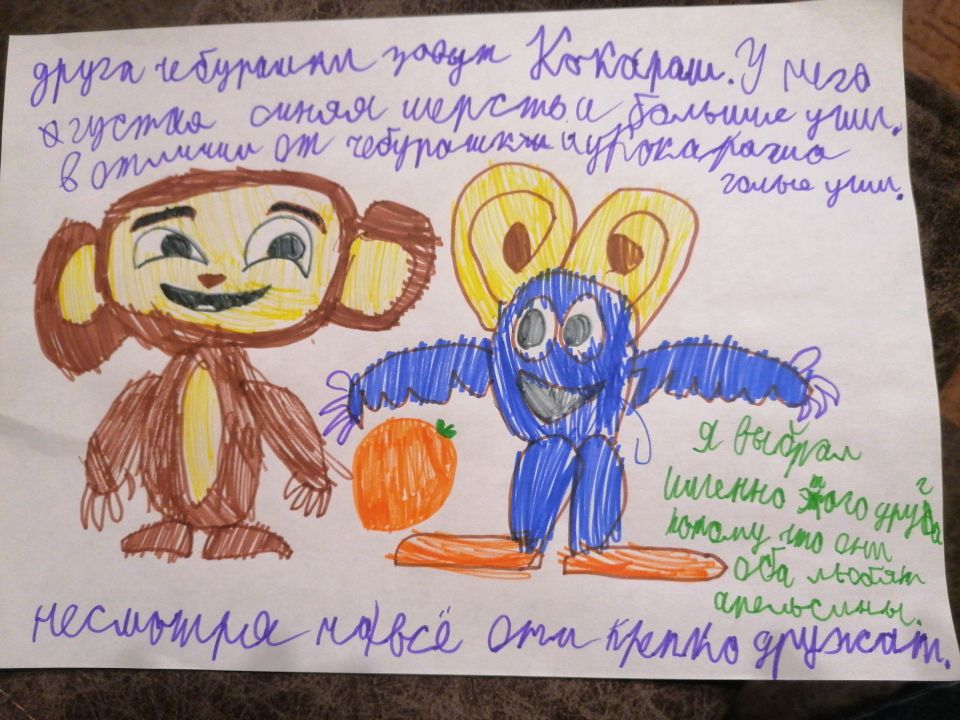 друга чебурашки зовут Кокараш. У него
густая синяя шерсть и большие уши.
в отличии от чебурашки у
голые уши.
Я выбрал
именно этого друга
потому что они
оба любят
апельсины.
несмотря на всё они крепко дружат.